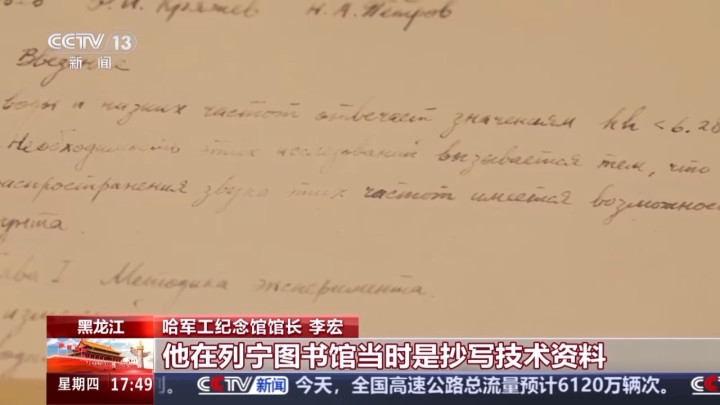 Р.И. Кряжев Н.А. Петров
CCTV 13
新闻
Введение
воды и низких частот отвечает значениям kh < 6.28
Необходимость этих исследований вызывается тем, что
распространения звука этих частот имеется возможнос
грунта.
Глава I Методика эксперимента.
黑龙江
哈军工纪念馆馆长 李宏
他在列宁图书馆当时是抄写技术资料
星期四 17:49
测。 CCTV新闻 今天，全国高速公路总流量预计6120万辆次。 CCTV